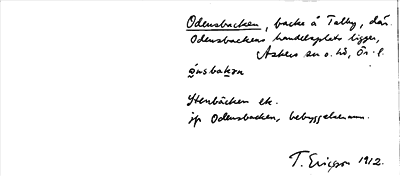 Odensbacken, backe å Talby, där
Odensbackens handelsplats ligger,
Askers sn o. hd, Ör. l.
ónsbakən
Stenbäcken ek.
jp Odensbacken, bebyggelsenamn.
T. Ericson 1912.